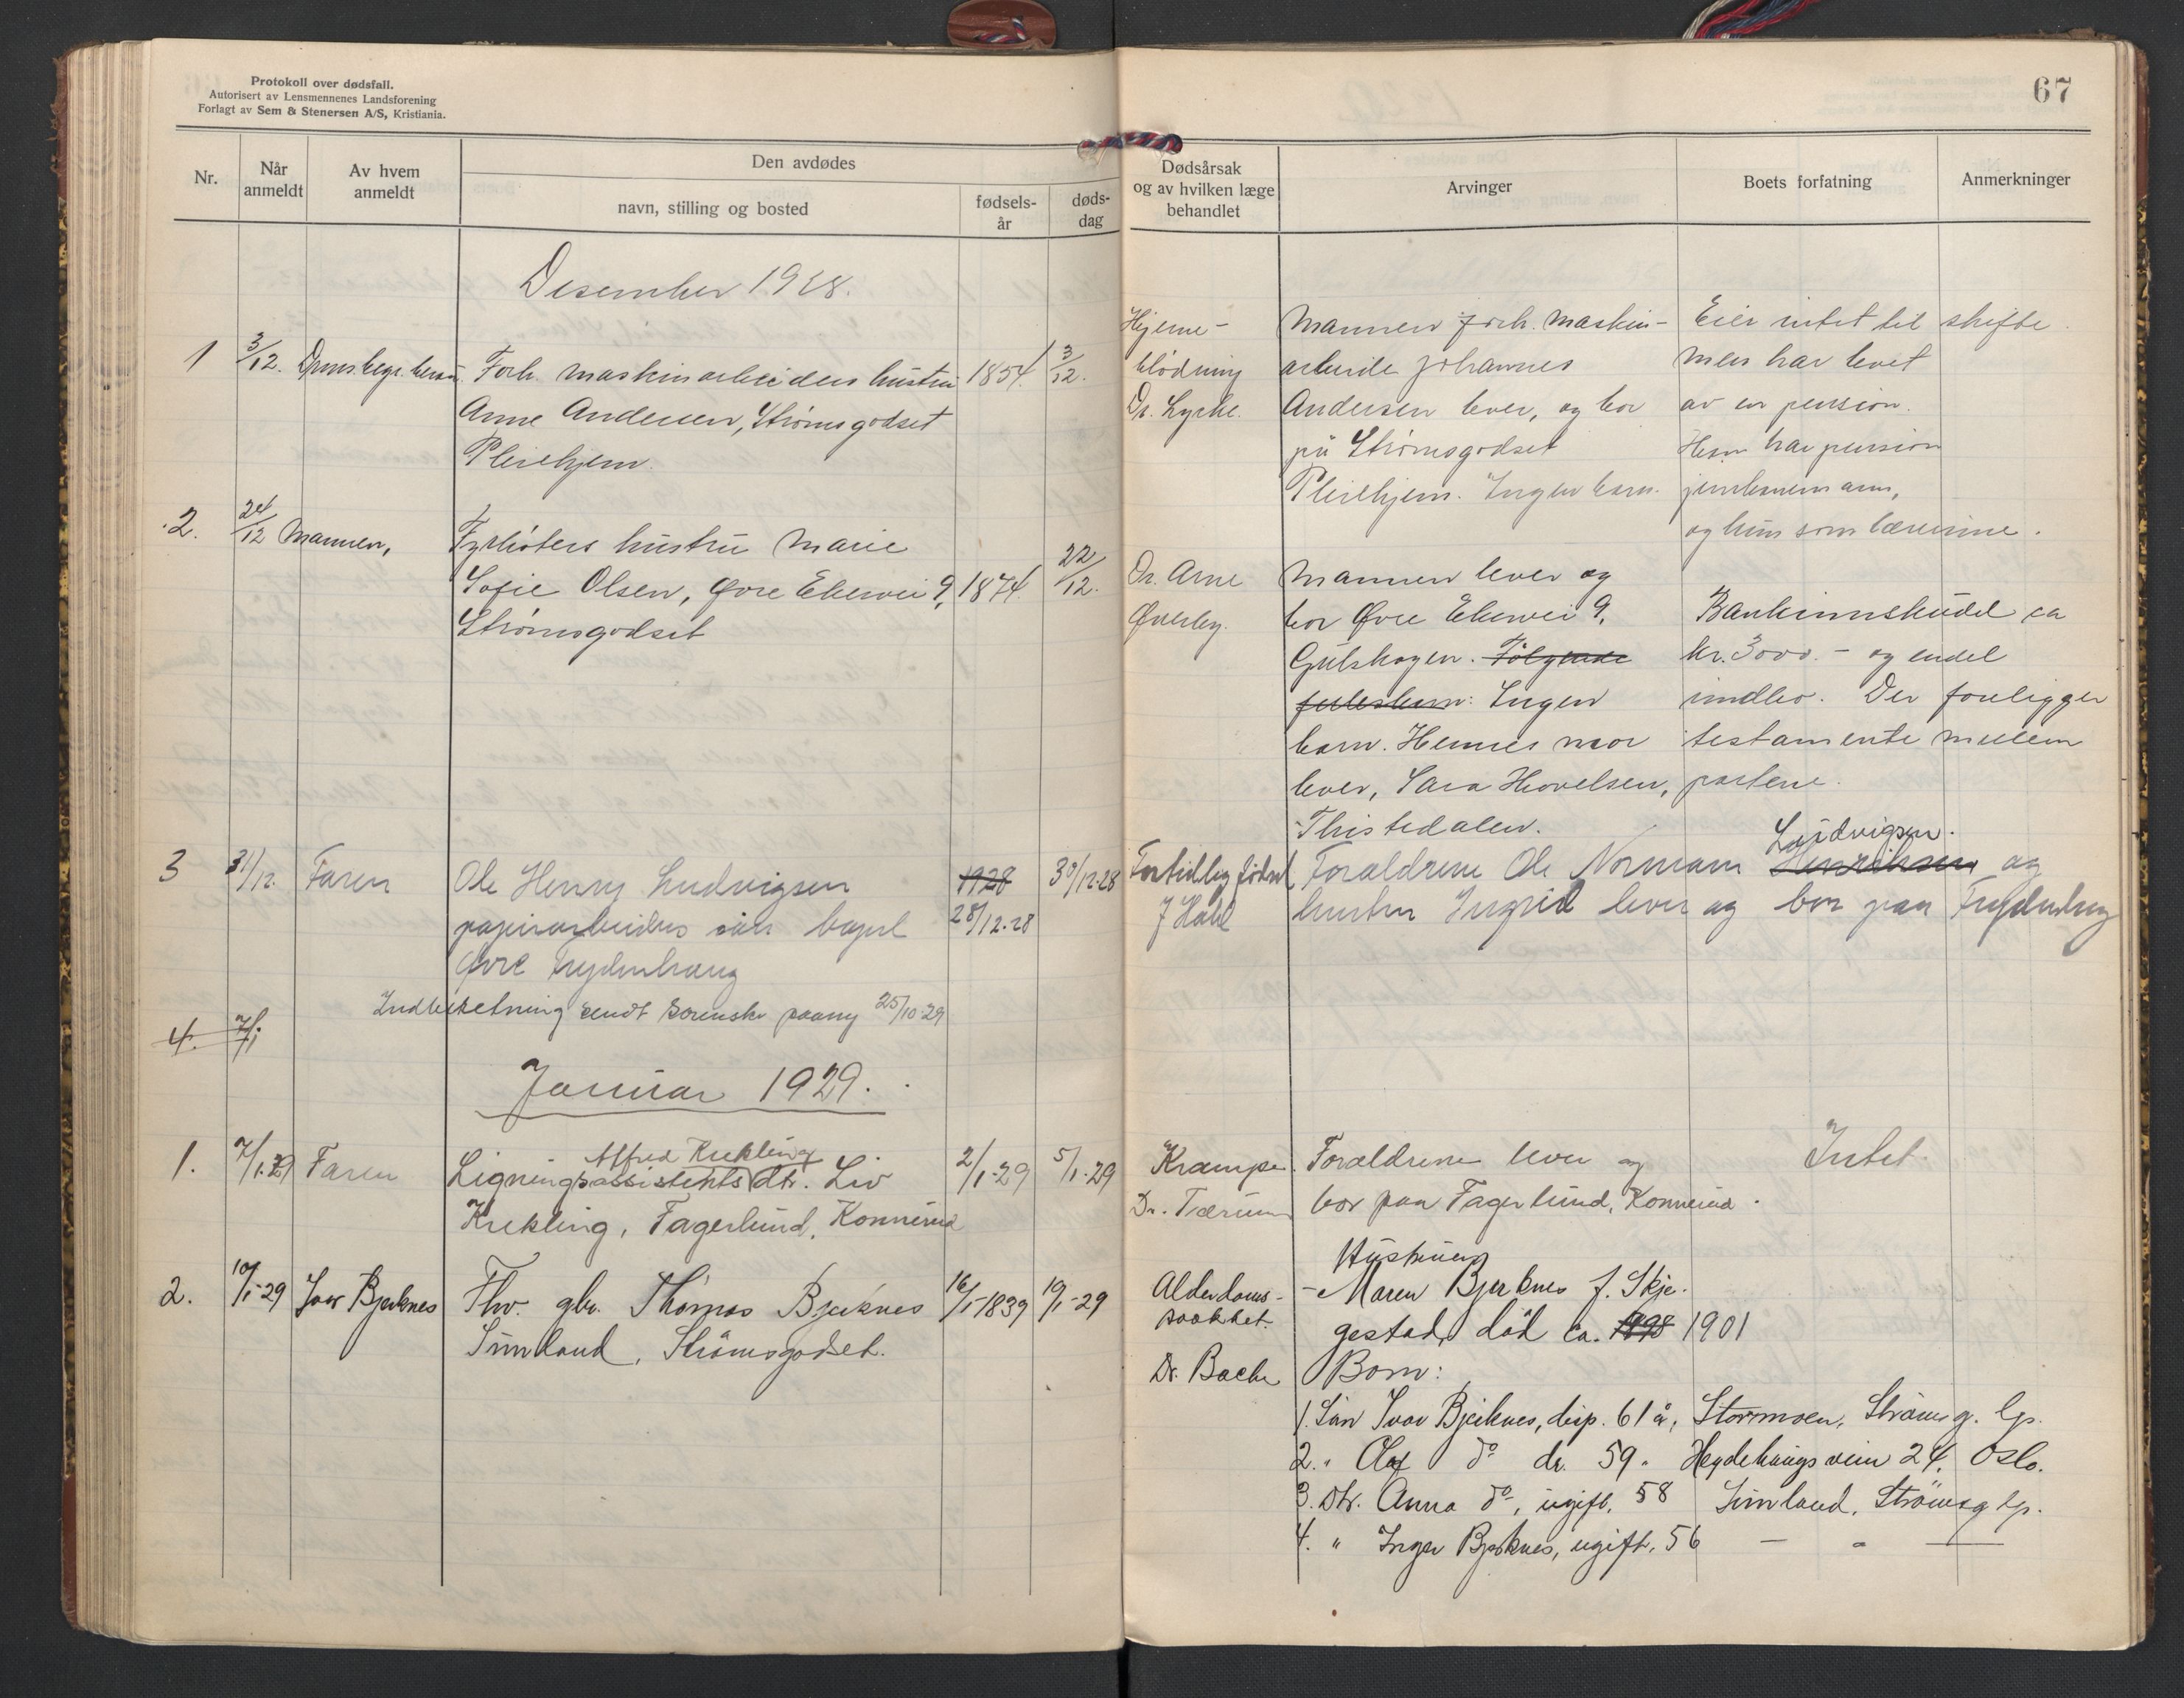 Protokoll over dødsfall.
Autorisert av Lensmennenes Landsforening
Forlagt av Sem & Stenersen A/S, Kristiania.
67
Nr.
Når anmeldt
Av hvem anmeldt
Den avdødes
navn, stilling og bosted
fødsels-år
døds-dag
Dødsårsak og av hvilken læge behandlet
Arvinger
Boets forfatning
Anmerkninger
Desember 1928.
1 3/12. Drms. begr. Forh. maskinarbeiders hustru 1854. 3/12.
Anne Andersen, Strømsgodset
Pleiehjem.
Hjerne-
blødning
Dr. Lyche.
Mannen forh. maskin-
arbeide Johannes
Andersen lever, og bor
på Strømsgodset
Pleiehjem. Ingen barn.
Eier intet til skifte
men har levet
av en pension.
Han har pension
jernbanemann,
og hun som lærerinne.
2. 24/12 Mannen, Fyrbøters hustru Marie
Sofie Olsen, Øvre Eikervei 9, 1874. 22/12.
Strømsgodset
Dr. Arne
Øverby.
Mannen lever og
bor Øvre Eikervei 9,
Gulskogen. Følgende
fellesbarn: Ingen
barn. Hennes mor
lever, Sara Hovelsen,
Thistedalen.
Bankinnskudd ca
kr. 3000.- og endel
indbo. Der foreligger
testamente mellem
partene.
3 31/12. Faren Ole Henry Ludvigsen 1928 30/12-28
papirarbeiders søn 28/12-28
Øvre Frydenhaug
Fortidlig fødsel
J Hall
Foraldrene Ole Normann Henriksen Ludvigsen og
hustru Ingrid lever og bor paa Frydenhaug
Indberetning sendt sorenskr paany 25/10-29
4. 7/1
Januar 1929.
1. 7/1.29 Faren Ligningsassistents Alfred Krekling dtr. Liv 2/1-29 5/1-29
Krekling, Fagerlund, Konnerud
Krampe.
Dr. Tærum
Foraldrene lever og
bor paa Fagerlund, Konnerud.
Intet.
2. 19/1-29 Ivar Bjerknes Fhv. gbr. Thomas Bjerknes 16/1-1839 19/1-29
Sunland, Strømsgodset.
Alderdoms-
svakhet.
Dr. Bache
Hustruen
- Maren Bjerknes f. Skje-
gestad, død ca. 1898 1901
Barn:
1. Søn Ivar Bjerknes, disp. 61 å, Stormoen, Strømsg. lp.
2. " Olaf do dr. 59 " Heydehaugs veien 24, Oslo.
3. Dtr. Anna do, ugift, 58 Sunland, Strømsg lp.
4. " Inga Bjerknes, ugift, 56 — " —